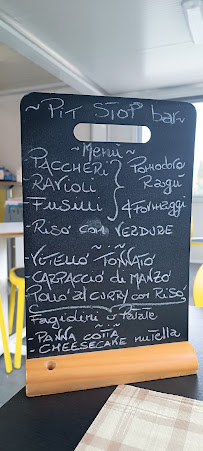 ~ PIT STOP bar ~
~ Menù ~
PACCHERI } Pomodoro
RAVIOLI } Ragù
FUSILLI } 4 FORMAGGI
- RISO CON VERDURE
~ . ~
- VITELLO TONNATO
- CARPACCIO di MANZO
- POLLO al CURRY con RISO
Fagiolini e Patate
~ . ~
- PANNA COTTA
- CHEESECAKE nutella